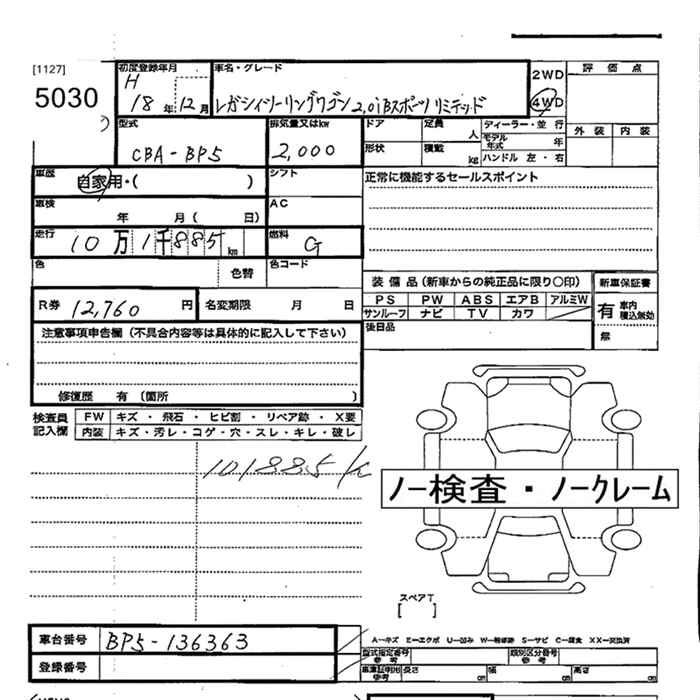 [1127]
5030
初度登録年月
H
18年12月
車名・グレード
レガシィツーリングワゴン 2.0iBスポーツ リミテッド
2WD
4WD
評価点
外装 内装
型式
CBA-BP5
排気量又はkw
2,000
ドア 定員 人
形状 積載 kg
ディーラー・並行
モデル年式 年
ハンドル 左・右
車歴
自家用・( )
シフト
正常に機能するセールスポイント
車検
年 月( 日)
AC
走行
10万1千885km
燃料
G
色
色替
色コード
装備品(新車からの純正品に限り○印)
PS PW ABS エアB アルミW
サンルーフ ナビ TV カワ
後日品
新車保証書
有 車内積込無効
無
R券 12,760円
名変期限 月 日
注意事項申告欄(不具合内容等は具体的に記入して下さい)
修復歴 有 (箇所 )
検査員記入欄
FW キズ・飛石・ヒビ割・リペア跡・X要
内装 キズ・汚レ・コゲ・穴・スレ・キレ・破レ
101885k
ノー検査・ノークレーム
スペアT
[ ]
車台番号 BP5-136363
登録番号
A-キズ E-エクボ U-凹み W-補修跡 S-サビ C-腐食 XX-交換済
型式指定番号 参考
類別区分番号 参考
車庫証明用参考 長さ cm 幅 cm 高さ cm